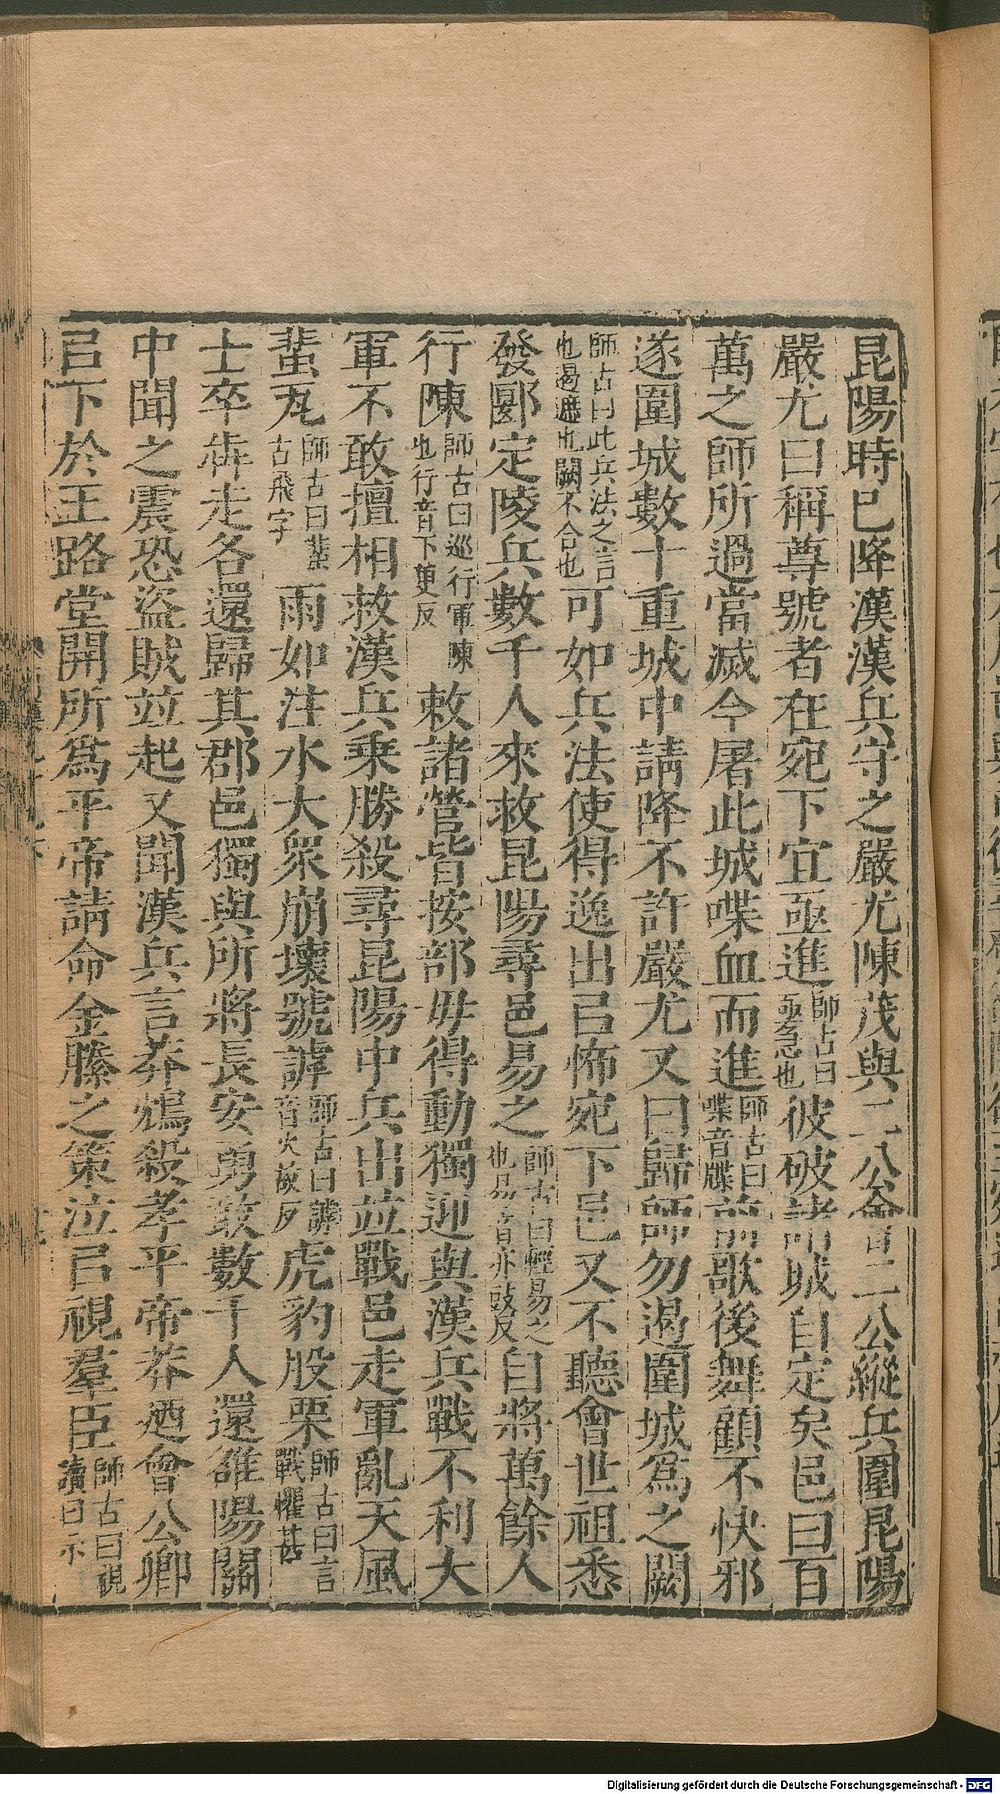 昆陽時已降漢漢兵守之嚴尤陳茂與二公會二公縱兵圍昆陽
嚴尤曰稱尊號者在宛下宜亟進師古曰亟急也彼破諸城自定矣邑曰百
萬之師所過當滅今屠此城喋血而進師古曰喋音牒前歌後舞顧不快邪
遂圍城數十重城中請降不許嚴尤又曰歸師勿遏圍城爲之闕
師古曰此兵法之言也遏遮也闕不合也可如兵法使得逸出㠯怖宛下邑又不聽會世祖悉
發郾定陵兵數千人來救昆陽尋邑易之師古曰輕易之也易音亦豉反自將萬餘人
行陳師古曰巡行軍陳也行音下更反敕諸營皆按部毋得動獨迎與漢兵戰不利大
軍不敢擅相救漢兵乘勝殺尋昆陽中兵出竝戰邑走軍亂天風
蜚瓦師古曰蜚古飛字雨如注水大眾崩壞號謼師古曰謼音火故反虎豹股栗師古曰言戰懼甚
士卒犇走各還歸其郡邑獨與所將長安勇敢數千人還雒陽關
中聞之震恐盜賊竝起又聞漢兵言莽鴆殺孝平帝莽迺會公卿
㠯下於王路堂開所爲平帝請命金縢之策泣㠯視羣臣師古曰視讀曰示
Digitalisierung gefördert durch die Deutsche Forschungsgemeinschaft - DFG